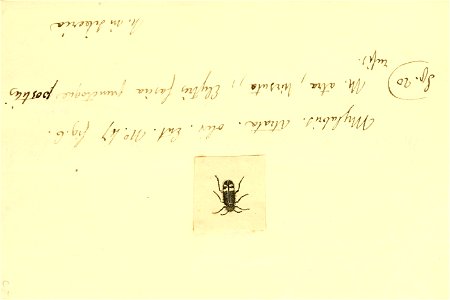 Mylabris. Atrata. oliv. Ent. No. 47 fig. 6.
Sp. 20 M. atra, hirsuta, Elytris fascia punctoque postico
rufis.
h. in Siberia